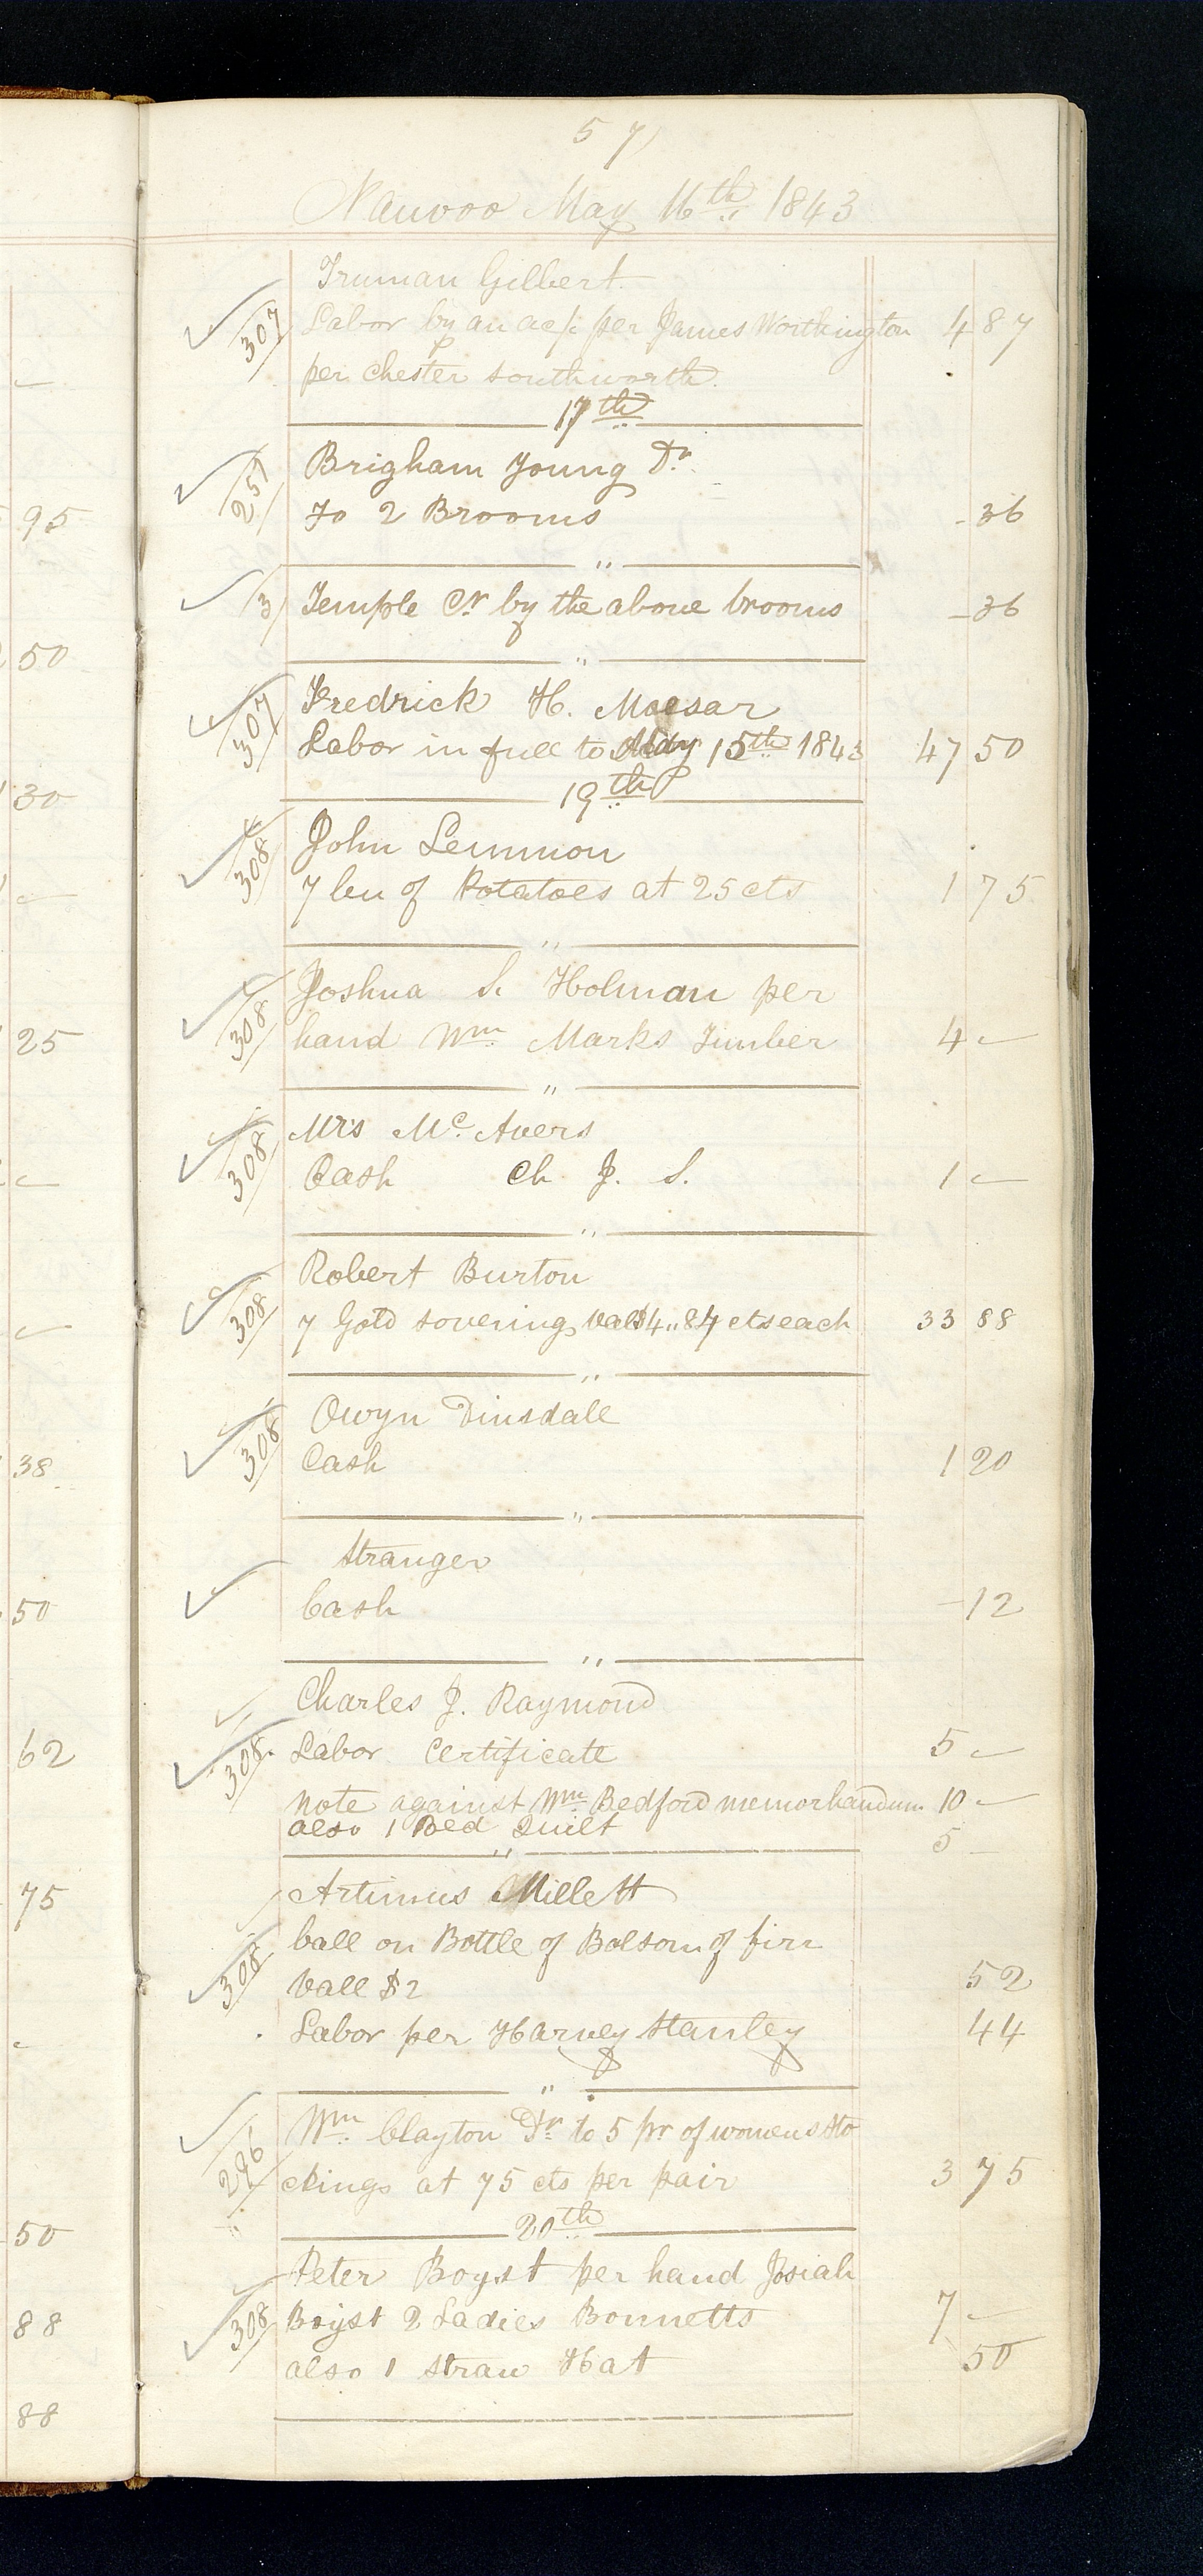 57
Nauvoo May 16th 1843
Truman Gilbert.
307 Labor by an acpt per James Worthington 4 87
per Chester Southworth.
17th
Brigham Young Dr.
251 To 2 Brooms - 36
"
3 Temple Cr by the above brooms - 36
"
Fredrick H. Moesar
307 Labor in full to May 15th 1843 47 50
19th
John Lemmon
308 7 bu of Potatoes at 25 cts 1 75
"
Joshua S. Holman per
308 hand Wm. Marks Timber 4 -
"
Mrs Mc. Avers
308 Cash Ch J. S. 1 -
"
Robert Burton
308 7 Gold sovering, val $4,,84 cts each 33 88
"
Owyn Dinsdale
308 Cash 1 20
"
Stranger
Cash - 12
"
Charles J. Raymond
308 Labor Certificate 5 -
note against Wm. Bedford memorhandum 10 -
also 1 Bed Quilt 5 -
"
Artimus Millett
ball on Bottle of Bolsom of firr
308 Vall $2 52
Labor per Harvey Stanley 44
"
Wm. Clayton Dr. to 5 pr of womens Sto
296 ckings at 75 cts per pair 3 75
20th
Peter Boyst per hand Josiah
308 Boyst 2 Ladies Bonnetts 7 -
also 1 straw Hat 50
95
50
30
25
38
50
62
75
50
88
88